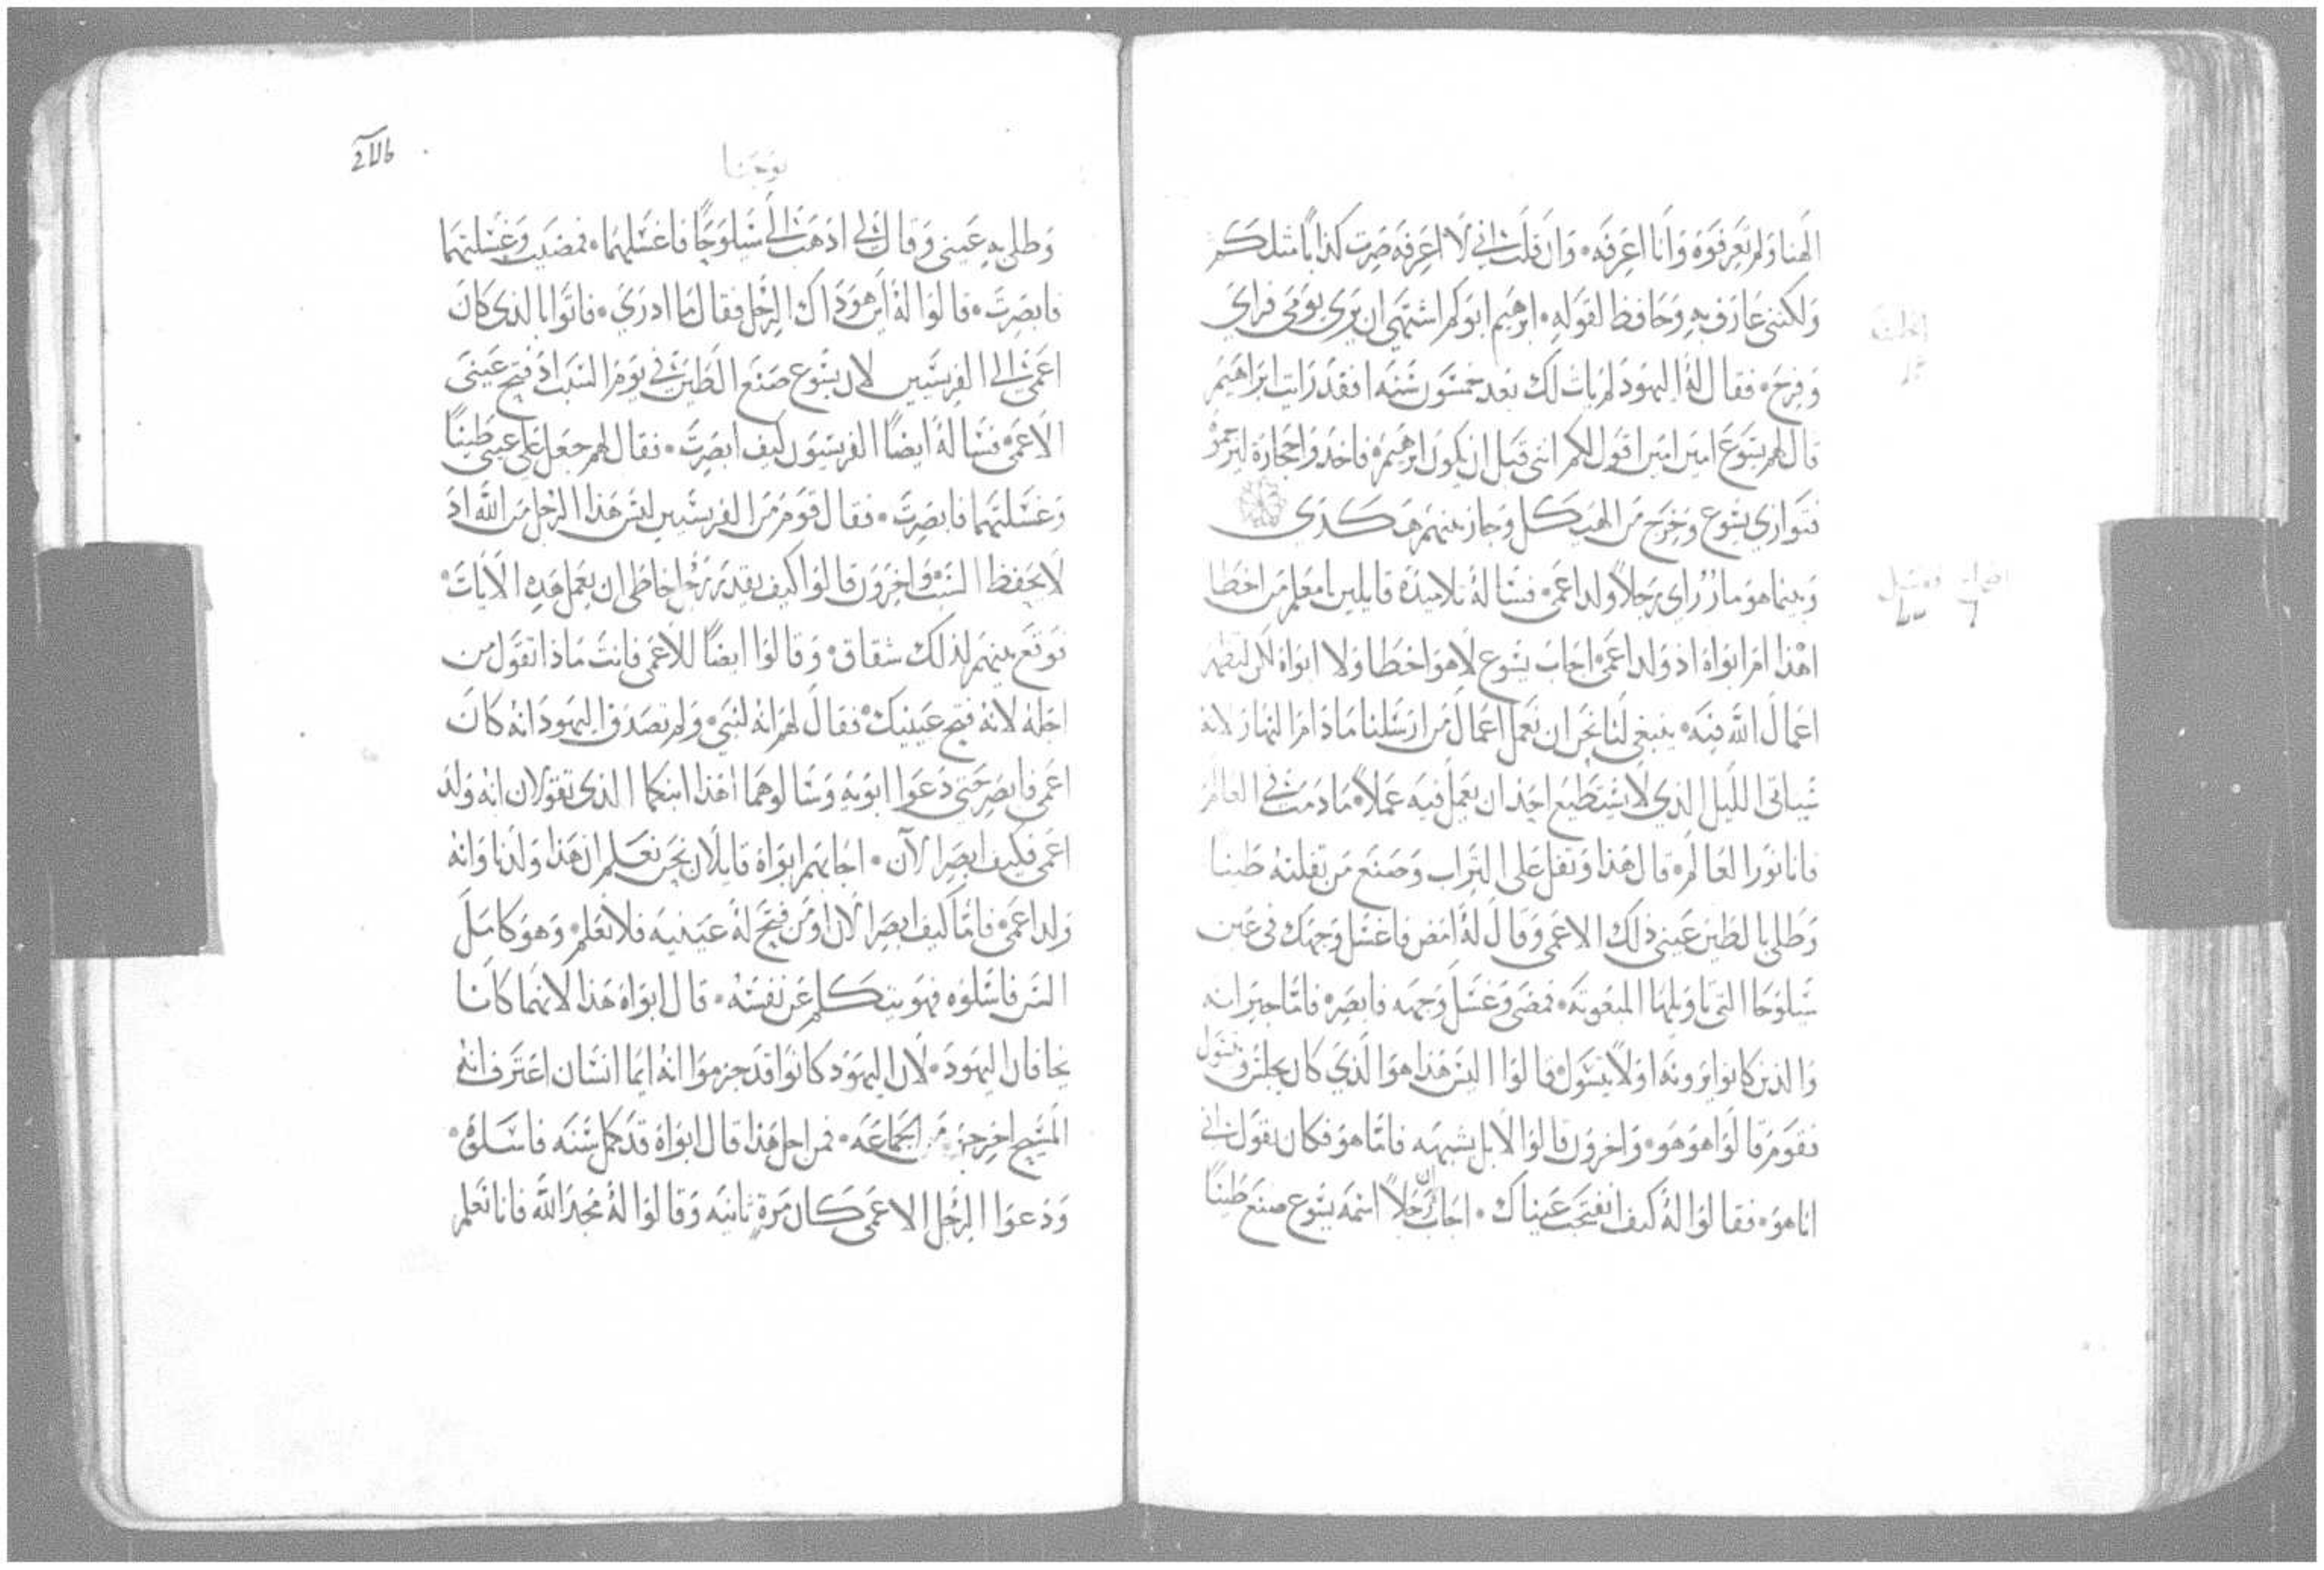 الهنا ولم تعرفوه وانا اعرفه۰ وان قلت اني لا اعرفه صرت كذابا مثلكم
ولكنني عارف به وحافظ لقوله۰ ابرهيم ابوكم اشتهي ان يري يومي فراي
وفرح۰ فقال له اليهود لم يات لك بعد خمسون سنه افقد رايت ابراهيم
قال لهم يسوع امين امين اقول لكم انني قبل ان يكون ابرهيم۰ فاخذوا حجارة ليرجموه
فتواري يسوع وخرج من الهيكل وجاز بينهم هكذي
وبينما هو مارٌ راي رجلاً ولد اعمي۰ فساله تلاميذه قايلين يامعلم من اخطا
اهذا ام ابواه اذ ولد اعمي۰ اجاب يسوع لا هو اخطا ولا ابواه لكن لتظهر
اعمال الله فيه۰ ينبغي لنا نحن ان نعمل اعمال من ارسلنا مادام النهار لانه
سياتي الليل الذي لا يستطيع احد ان يعمل فيه عملاً۰ مادمت في العالم
فانا نور العالم۰ قال هذا وتفل علي التراب وصنع من تفلته طينا
وطلي بالطين عيني ذلك الاعمي وقال له امض فاغسل وجهك في عين
سيلوحا التي تاويلها المبعوثه۰ فمضي وغسل وجهه فابصر۰ فاما جيرانه
والذين كانوا يرونه اولا يتسول۰ قالوا اليس هذا هو الذي كان يجلس ويتسول
فقوم قالوا هو هو۰ واخرون قالوا لا بل يشبهه فاما هو فكان يقول اني
انا هو۰ فقالوا له كيف انفتحت عيناك۰ اجاب ان رجلاً اسمه يسوع صنع طينًا
يوحنا
وطلي به عيني وقال لي اذهب الي سيلوحا فاغسلهما۰ فمضيت وغسلتهما
فابصرت۰ قالوا له اين هو ذاك الرجل فقال ما ادري۰ فاتوا بالذي كان
اعمي الي الفريسيين لان يسوع صنع الطين في يوم السبت اذ فتح عيني
الاعمي۰ فساله ايضًا الفريسيون كيف ابصرت۰ فقال لهم جعل علي عيني طينًا
وغسلتهما فابصرت۰ فقال قوم من الفريسيين ليس هذا الرجل من الله اذ
لا يحفظ السبت۰ واخرون قالوا كيف يقدر رجل خاطي ان يعمل هذه الايات۰
فوقع بينهم لذلك شقاق۰ وقالوا ايضًا للاعمي فانت ماذا تقول من
اجله لانه فتح عينيك۰ فقال لهم انه لنبي۰ ولم تصدق اليهود انه كان
اعمي فابصر حتي دعوا ابويه وسالوهما اهذا ابنكما الذي تقولان انه ولد
اعمي فكيف ابصر الآن۰ اجابهم ابواه قايلان نحن نعلم ان هذا ولدنا وانه
ولد اعمي۰ فاما كيف ابصر الان او من فتح له عينيه فلا نعلم۰ وهو كامل
السن فاسلوه فهو يتكلم عن نفسه۰ قال ابواه هذا لانهما كانا
يخافان اليهود۰ لان اليهود كانوا قد جزموا انه ايما انسان اعترف انه
المسيح اخرج من الجماعه۰ فمن اجل هذا قال ابواه قد كمل سنه فاسلوه۰
ودعوا الرجل الاعمي كان مرةٍ ثانيه وقالوا له مجد الله فانا نعلم